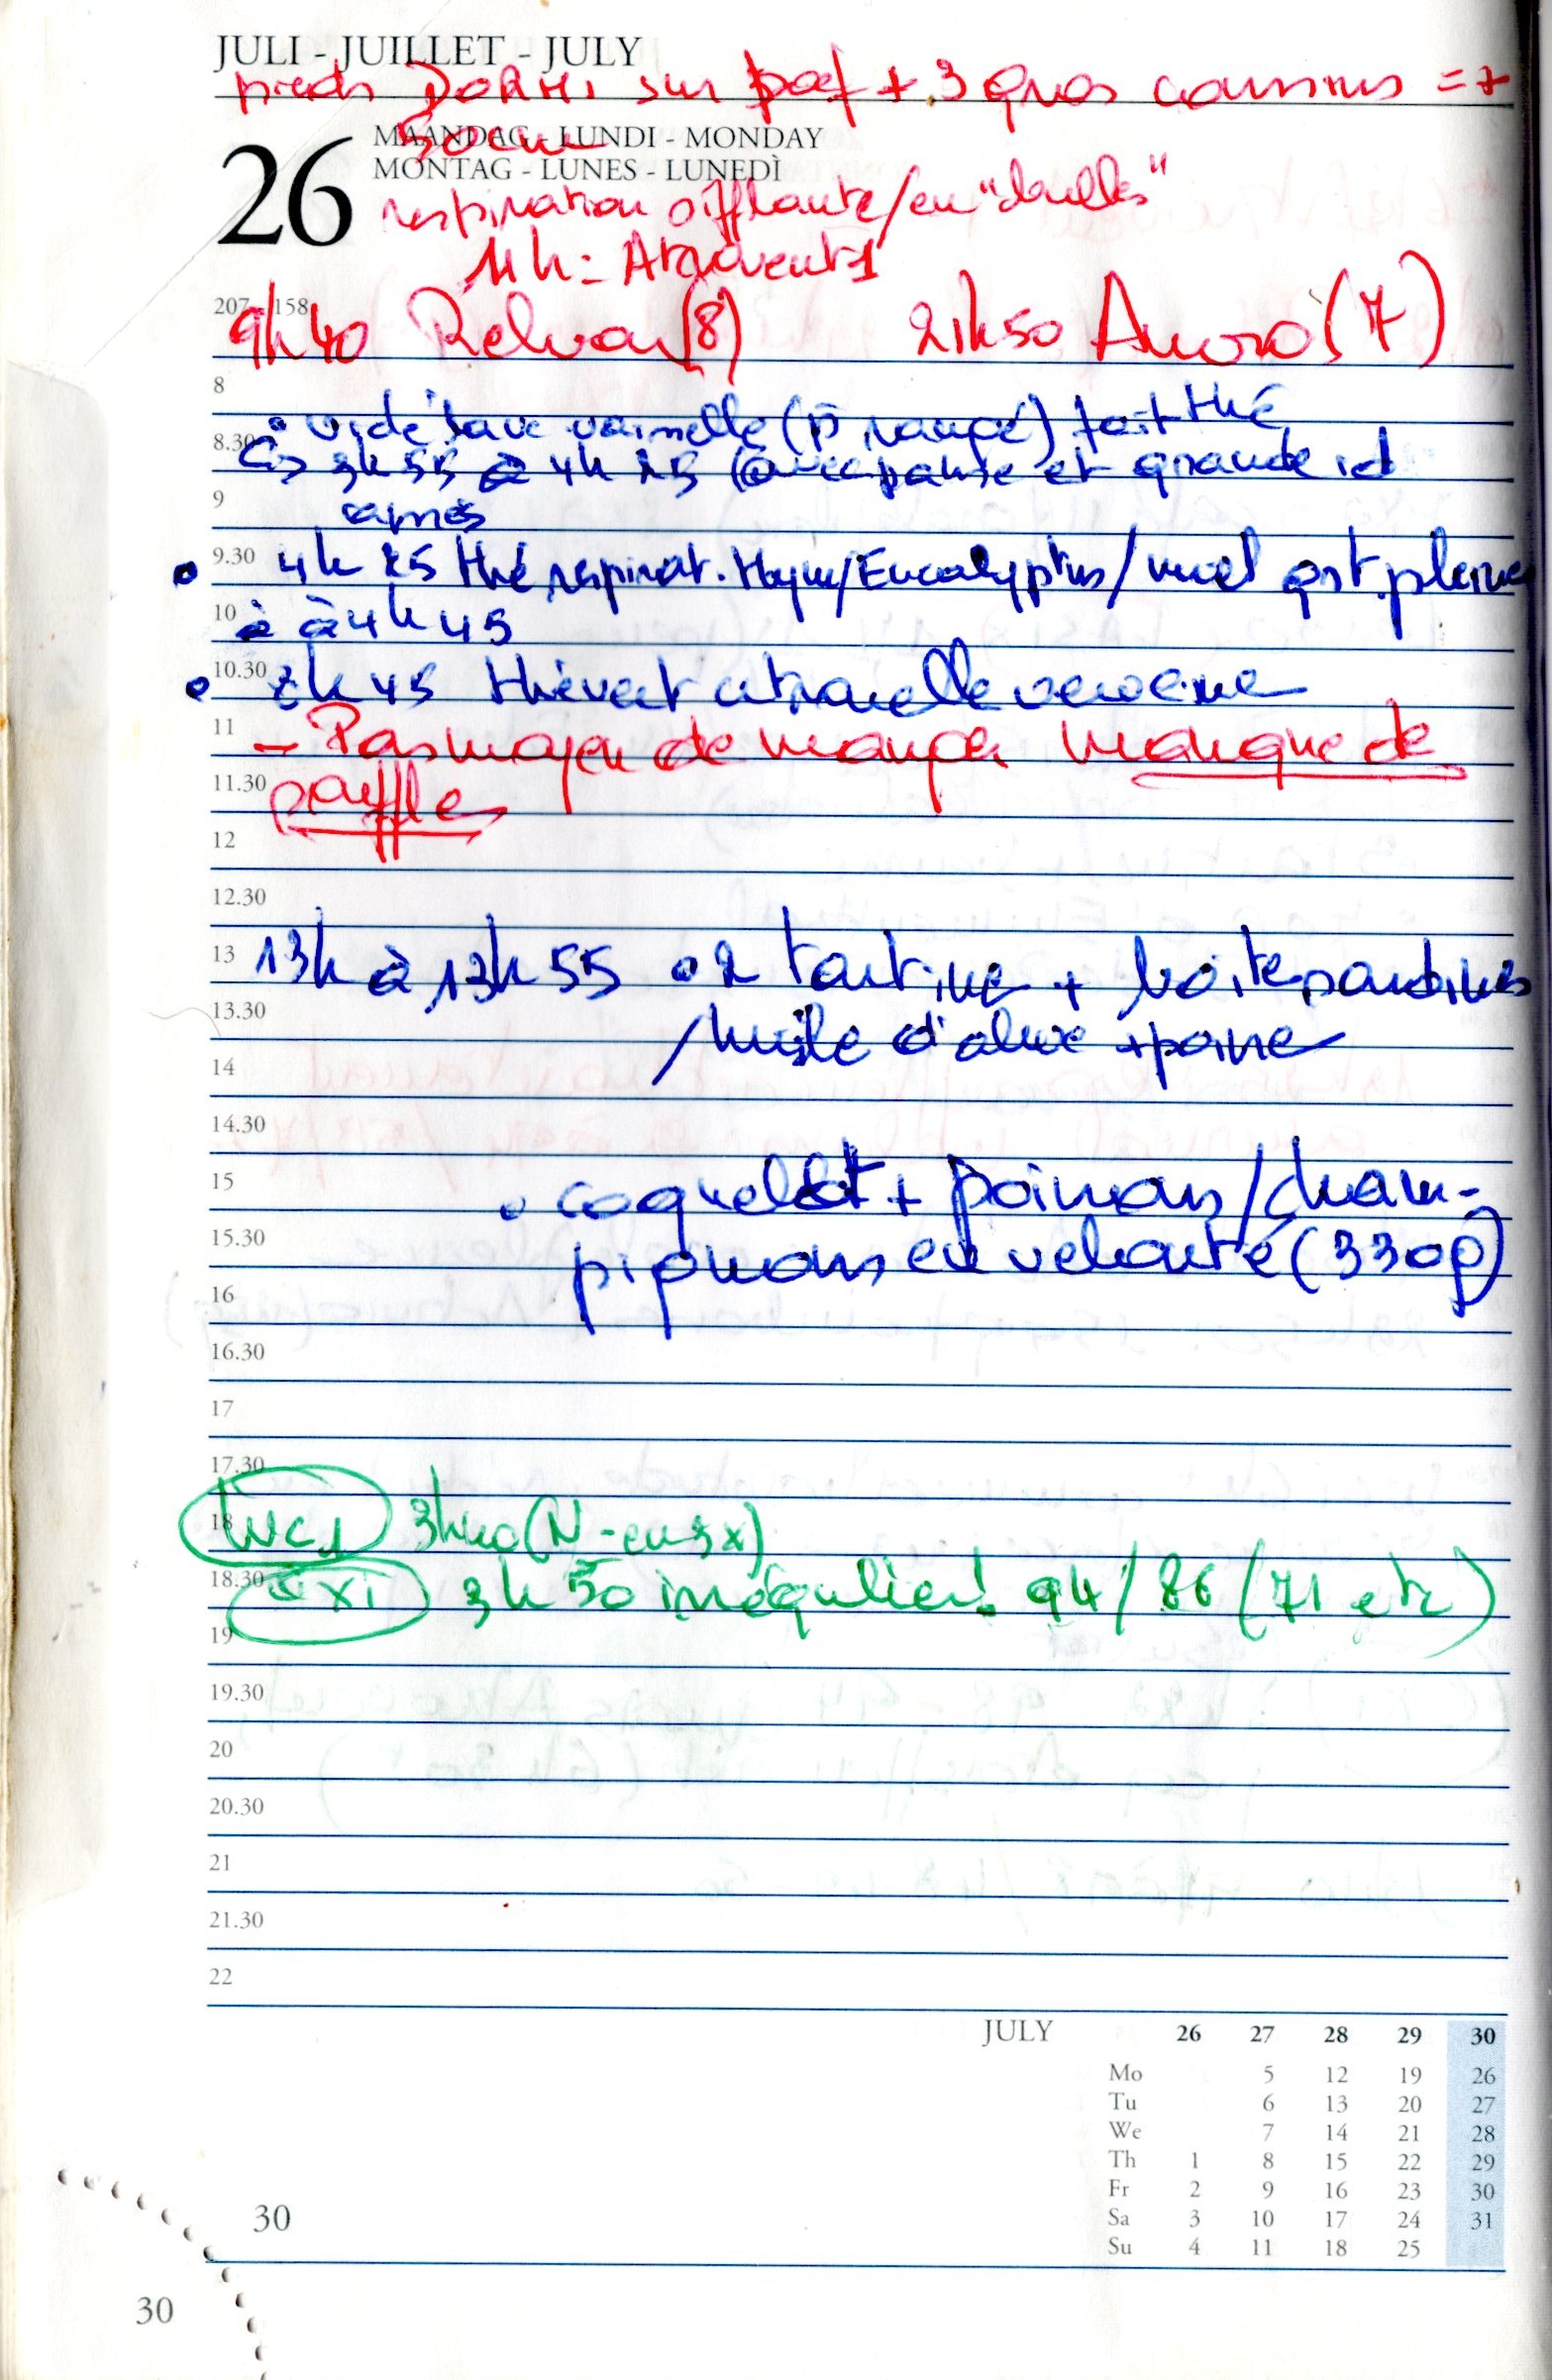 JULI - JUILLET - JULY
pieds DORMI sur pouf + 3 gros coussins = +
50cm
26
MAANDAG - LUNDI - MONDAY
MONTAG - LUNES - LUNEDÌ
respiration sifflante/en "bulles"
11h = Atrovent 1
207 158
9h40 Relvar (8) 21h50 Anoro (7)
8
• vidé lave vaisselle (p rangé) fait thé
8.30
3h55 à 4h25 (avec pause et grande id
9
après
9.30
• 4h25 thé respirat. thym/Eucalyptus/miel gst. pleine
10
à 4h45
10.30
• h45 thé vert citronelle verveine
11
- Pas moyen de manger manque de
11.30
souffle
12
12.30
13
13h à 13h55 • 2 tartine + boite sardines
13.30
/huile d'olive + poire
14
14.30
15
• coquelet + poireaux/cham-
15.30
pignons en velouté (330g)
16
16.30
17
17.30
18
WC1 3h40 (N - en 3x)
18.30
OXI 3h50 irrégulier! 94/86 (71 etc)
19
19.30
20
20.30
21
21.30
22
JULY 26 27 28 29 30
Mo 5 12 19 26
Tu 6 13 20 27
We 7 14 21 28
Th 1 8 15 22 29
Fr 2 9 16 23 30
Sa 3 10 17 24 31
Su 4 11 18 25
30
30